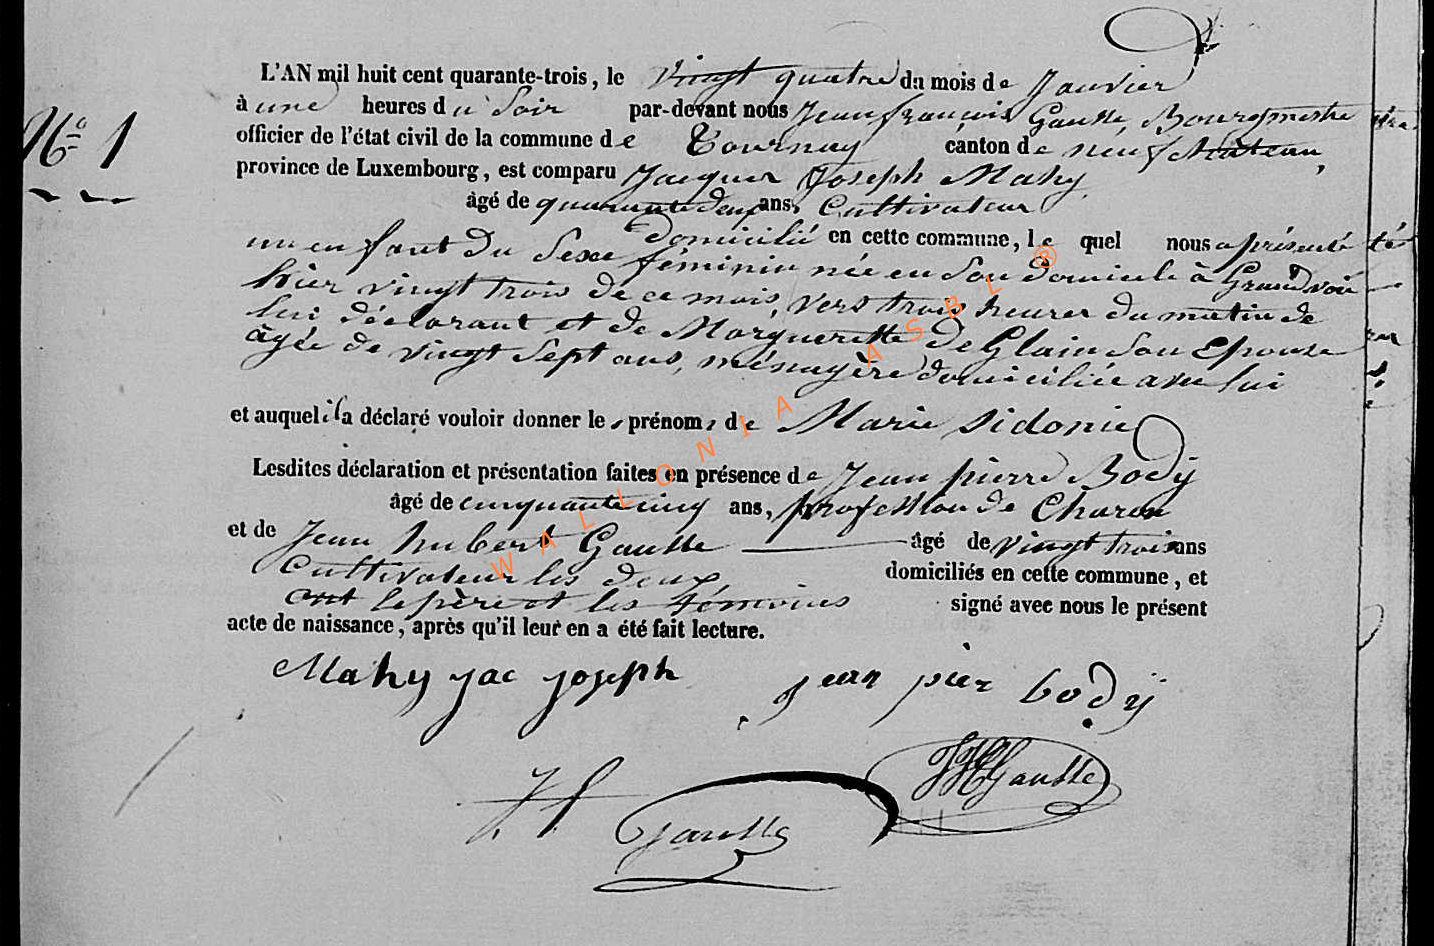 L'AN mil huit cent quarante-trois, le vingt quatre du mois de Janvier
N° 1
à une heures du Soir par-devant nous Jean françois Gausse, Bourgmestre
officier de l'état civil de la commune de Tournay canton de neufchâteau,
province de Luxembourg, est comparu Jacques Joseph Mahy
âgé de quarante deux ans, Cultivateur
domicilié en cette commune, lequel nous a présenté
un enfant du Sexe féminin née en Son domicile à Grandvoir
hier vingt trois de ce mois, vers trois heures du matin de
lui déclarant et de Marguerette de Glain Son Epouse
âgée de vingt Sept ans, ménagère domiciliée avec lui
et auquel il a déclaré vouloir donner les prénoms de Marie Sidonie
Lesdites déclaration et présentation faites en présence de Jean pierre Body
âgé de cinquante cinq ans, profession de Charon
et de Jean hubert Gausse âgé de vingt trois ans
Cultivateur les deux domiciliés en cette commune, et
ont le père et les témoins signé avec nous le présent
acte de naissance, après qu'il leur en a été fait lecture.
Mahy jac joseph
jean pier body
JHGausse
J f Gausse
WALLONIA ASBL ®